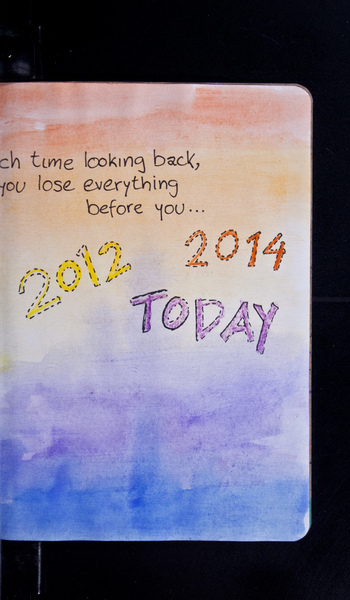 ch time looking back,
you lose everything
before you...
2012
2014
TODAY